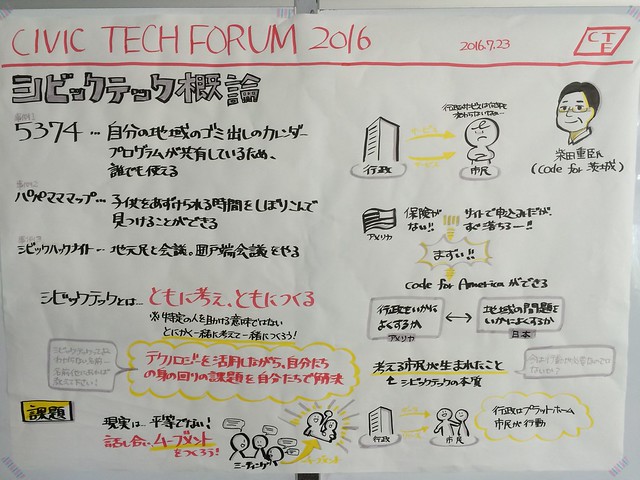 CIVIC TECH FORUM 2016
2016.7.23
CTF
シビックテック概論
事例1
5374 … 自分の地域のゴミ出しのカレンダー
プログラムが共有しているため、
誰でも使える
事例2
パパママママップ… 子供をあずけられる時間をしぼりこんで
見つけることができる
シビックハックナイト… 地元民と会議。井戸端会議をやる
シビックテックとは… ともに考え、ともにつくる
※特定の人を助ける意味ではない
とにかく一緒に考えて一緒につくろう!
テクノロジーを活用しながら、自分たち
の身の回りの課題を自分たちで解決
課題
現実は…平等でない!
話し合い、ムーブメント
をつくろう!
ミーティング
ムーブメント
行政
サービス
市民
柴田重臣氏
(Code for 茨城)
アメリカ
保険が
ない!!
サイトで申込みだが、
すぐ落ちるー!!
まずい!!
Code for Americaができる
行政をいかに
よくするか
アメリカ
地域の問題を
いかによくするか
日本
考える市民が生まれたこと
シビックテックの本質
行政
市民
行政はプラットホーム
市民が行動